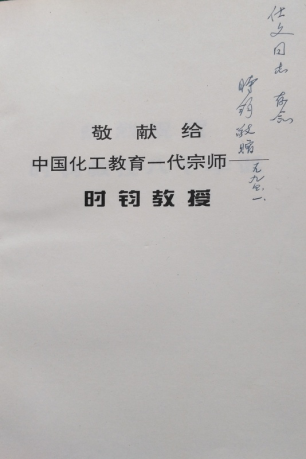 敬献给
中国化工教育一代宗师
时钧教授
仕文同志 存念
时钧敬赠